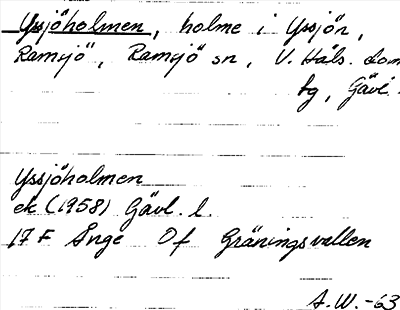 Yssjöholmen, holme i Yssjön,
Ramsjö, Ramsjö sn, V. Häls. dom
sg, Gävl.
Yssjöholmen
ek (1958) Gävl. l.
17 F Ånge Öf Gräningsvallen
A.W.-63